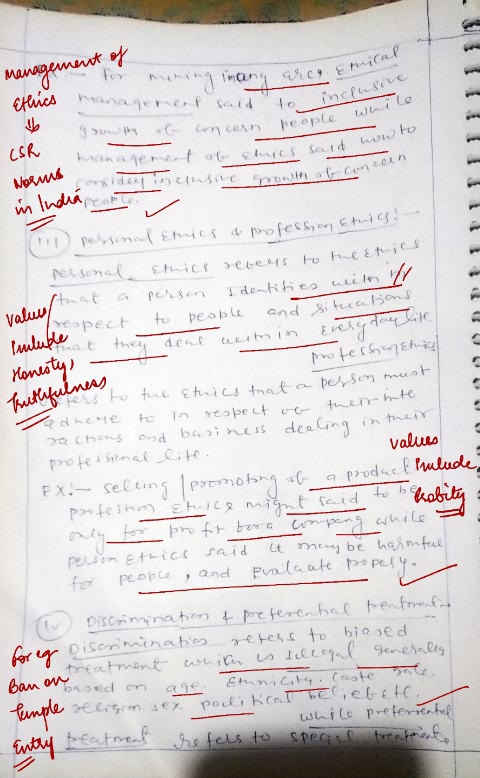 management of
Ethics
↓
CSR
Norms
in India
:- For mining in any area, Ethical
management said to inclusive
growth of concern people while
management of ethics said how to
consider inclusive growth of concern
people.
(iii) personal Ethics & profession Ethics:-
personal Ethics refers to the Ethics
that a person Identifies with in
respect to people and situations
that they deal with in everyday life
profession Ethics
refers to the Ethics that a person must
adhere to in respect of their inte
ractions and business dealing in their
professional life.
values
Include
Honesty,
truthfulness
EX:- selling / promoting of a product
profession Ethics might said to be
only for profit for a company while
person Ethics said it may be harmful
for people, and evaluate propely.
values
Include
(iv) Discrimination & preferential treatment:-
Discrimination refers to biased
treatment which is Illegal generally
based on age, Ethnicity, caste
religion, sex political belief etc.
while preferential
treatment refers to special treatment
For eg
Ban on
Temple
Entry